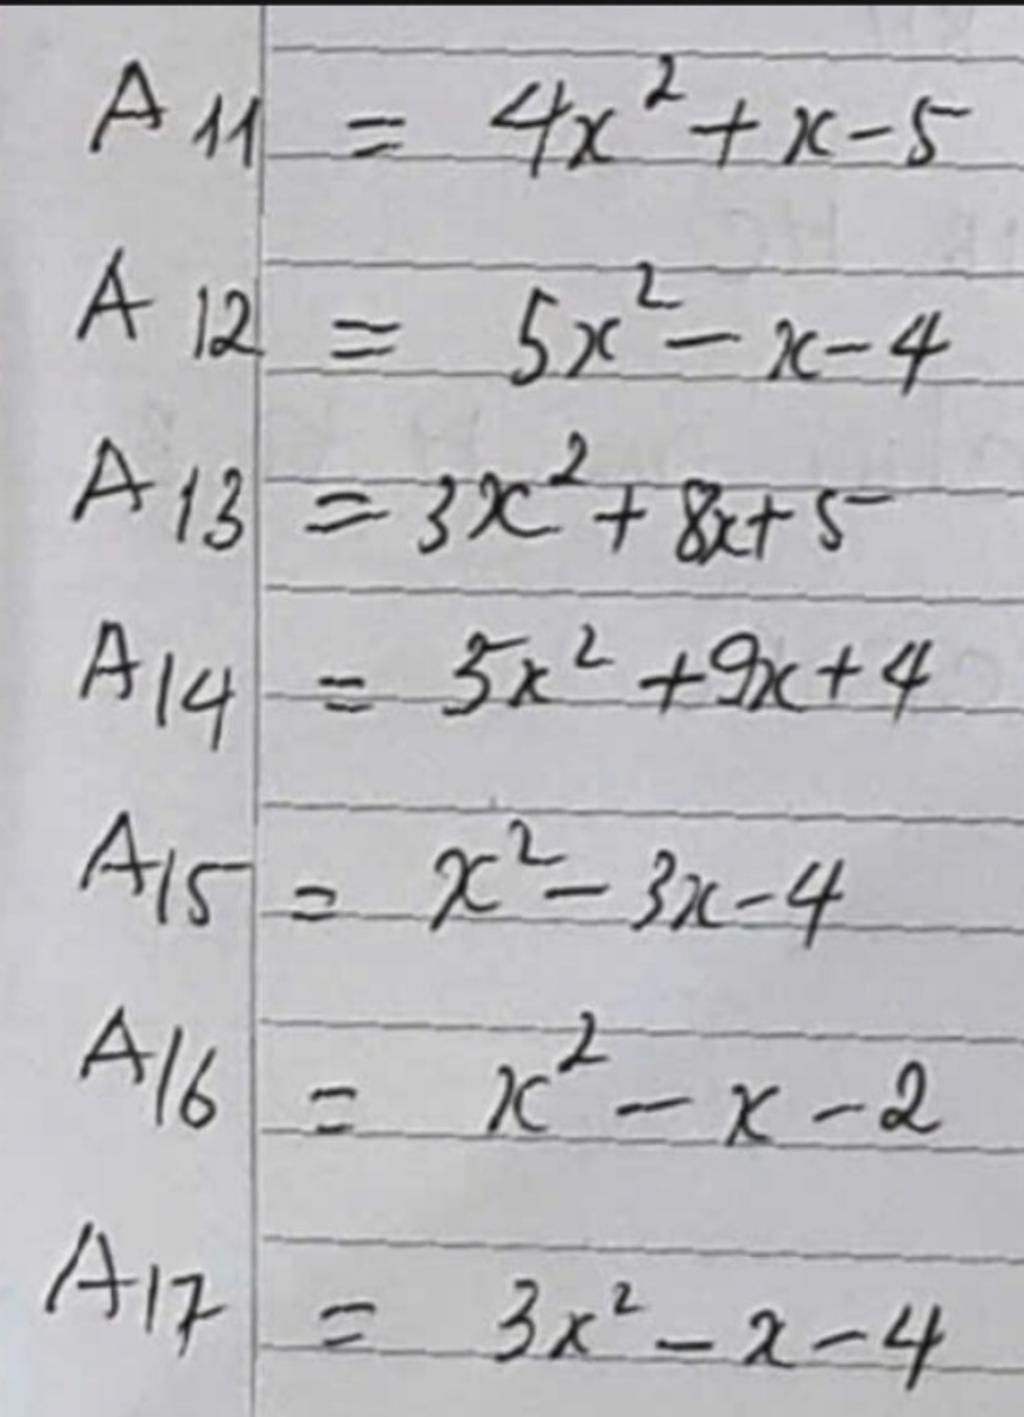 A11 = 4x² + x - 5
A12 = 5x² - x - 4
A13 = 3x² + 8x + 5
A14 = 5x² + 9x + 4
A15 = x² - 3x - 4
A16 = x² - x - 2
A17 = 3x² - x - 4